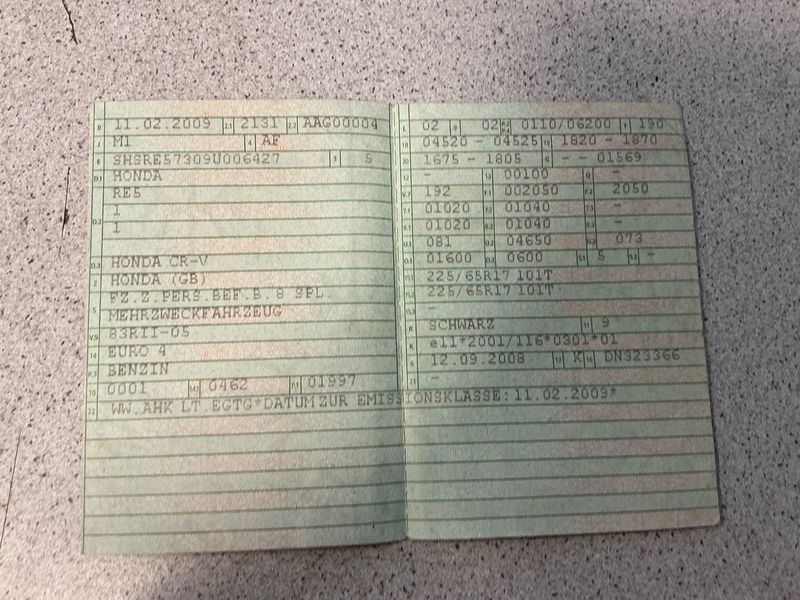 B 11.02.2009 2.1 2131 2.2 AAG00004
J M1 4 AF
E SHSRE57309U006427 3 5
D.1 HONDA
RE5
D.2 1
1
D.3 HONDA CR-V
2 HONDA (GB)
FZ.Z.PERS.BEF.B. 8 SPL.
5 MEHRZWECKFAHRZEUG
V.9 83RII-05
14 EURO 4
P.3 BENZIN
10 0001 14.1 0462 P.1 01997
22 WW.AHK LT.EGTG*DATUM ZUR EMISSIONSKLASSE: 11.02.2009*
L 02 9 02 P.2 P.4 0110/06200 T 190
18 04520 - 04525 19 1820 - 1870
20 1675 - 1805 G - - 01569
12 - 13 00100 Q -
V.7 192 F.1 002050 F.2 2050
7.1 01020 7.2 01040 7.3 -
8.1 01020 8.2 01040 8.3 -
U.1 081 U.2 04650 U.3 073
O.1 01600 O.2 0600 S.1 5 S.2 -
15.1 225/65R17 101T
15.2 225/65R17 101T
15.3 -
R SCHWARZ 11 9
K e11*2001/116*0301*01
6 12.09.2008 17 K 16 DN323366
21 -